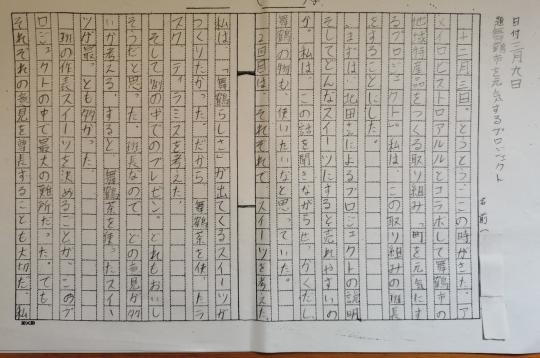 日付 三月九日
題 舞鶴市を元気にするプロジェクト
名前(
十二月三日。とうとう、この時がきた。ア
メイロビストロアルルとコラボして舞鶴市の
地域特産品をつくる取り組み「町を元気にす
るプロジェクト」私は、この取り組みの班長
をすることにした。
まずは、北田さんによるプロジェクトの説明
そしてどんなスイーツにすると売れやすいの
か。私は、この話を聞きながらせっかくだし、
舞鶴の物も、使いたいなと思っていた。
2回目は、それぞれでスイーツを考えた。
私は「舞鶴らしさ」が出てくるスイーツが
つくりたかった。だから、舞鶴茶を使ったラ
スク、ティラミスを考えた。
そして別の中でのプレゼン。どれもおいし
そうだと思った。班長なので、どの意見が多
いか考える。すると、舞鶴茶を使ったスイー
ツが最っとも多かった。
班の代表スイーツを決めることが、このプ
ロジェクトの中で最大の難所だった。でも、
それぞれの意見を尊長することも大切だ。私